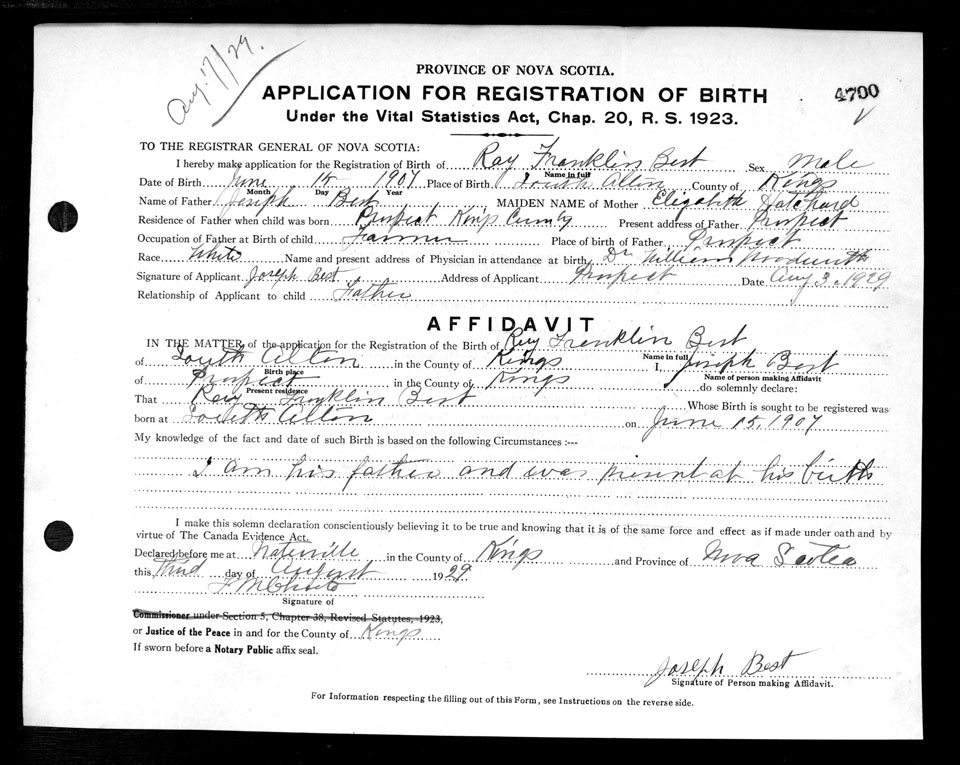 Aug. 17/29.
PROVINCE OF NOVA SCOTIA.
APPLICATION FOR REGISTRATION OF BIRTH
4700
Under the Vital Statistics Act, Chap. 20, R. S. 1923.
TO THE REGISTRAR GENERAL OF NOVA SCOTIA:
I hereby make application for the Registration of Birth of Ray Franklin Best Sex Male
Name in full
Date of Birth June 15 1907 Place of Birth South Alton County of Kings
Month Day Year
Name of Father Joseph Best MAIDEN NAME of Mother Elizabeth
Residence of Father when child was born Prospect Kings County Present address of Father Prospect
Occupation of Father at Birth of child Farmer Place of birth of Father Prospect
Race White Name and present address of Physician in attendance at birth Dr William Woodworth
Signature of Applicant Joseph Best Address of Applicant Prospect Date Aug 3. 1929
Relationship of Applicant to child Father
AFFIDAVIT
IN THE MATTER of the application for the Registration of the Birth of Ray Franklin Best
Name in full
of South Alton in the County of Kings I, Joseph Best
Birth place Name of person making Affidavit
of Prospect in the County of Kings do solemnly declare:
Present residence
That Ray Franklin Best Whose Birth is sought to be registered was
born at South Alton on June 15, 1907
My knowledge of the fact and date of such Birth is based on the following Circumstances :---
I am his father and was present at his birth
I make this solemn declaration conscientiously believing it to be true and knowing that it is of the same force and effect as if made under oath and by
virtue of The Canada Evidence Act.
Declared before me at in the County of Kings and Province of Nova Scotia
this, Third day of August 1929
Signature of
Commissioner under Section 5, Chapter 38, Revised Statutes, 1923,
or Justice of the Peace in and for the County of Kings
If sworn before a Notary Public affix seal.
Joseph Best
Signature of Person making Affidavit.
For Information respecting the filling out of this Form, see Instructions on the reverse side.